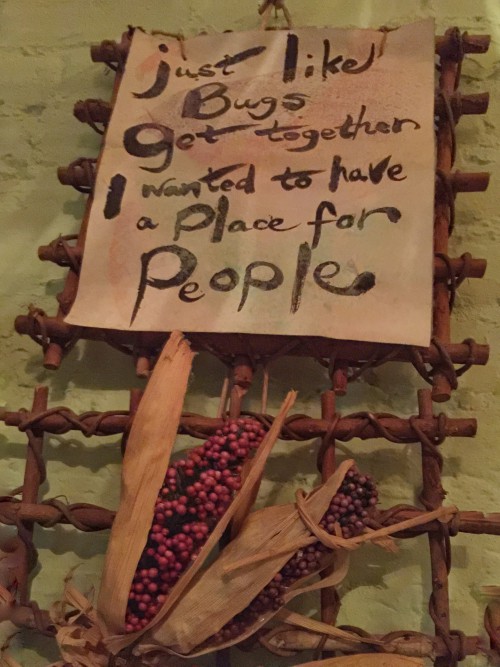 just like
Bugs
get together
I wanted to have
a place for
People